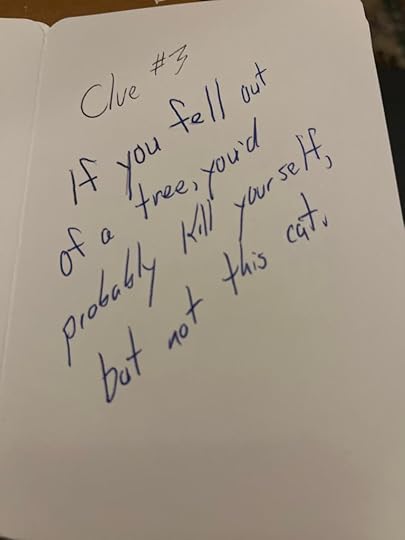 Clue #3
If you fell out
of a tree, you'd
probably kill yourself,
but not this cat.